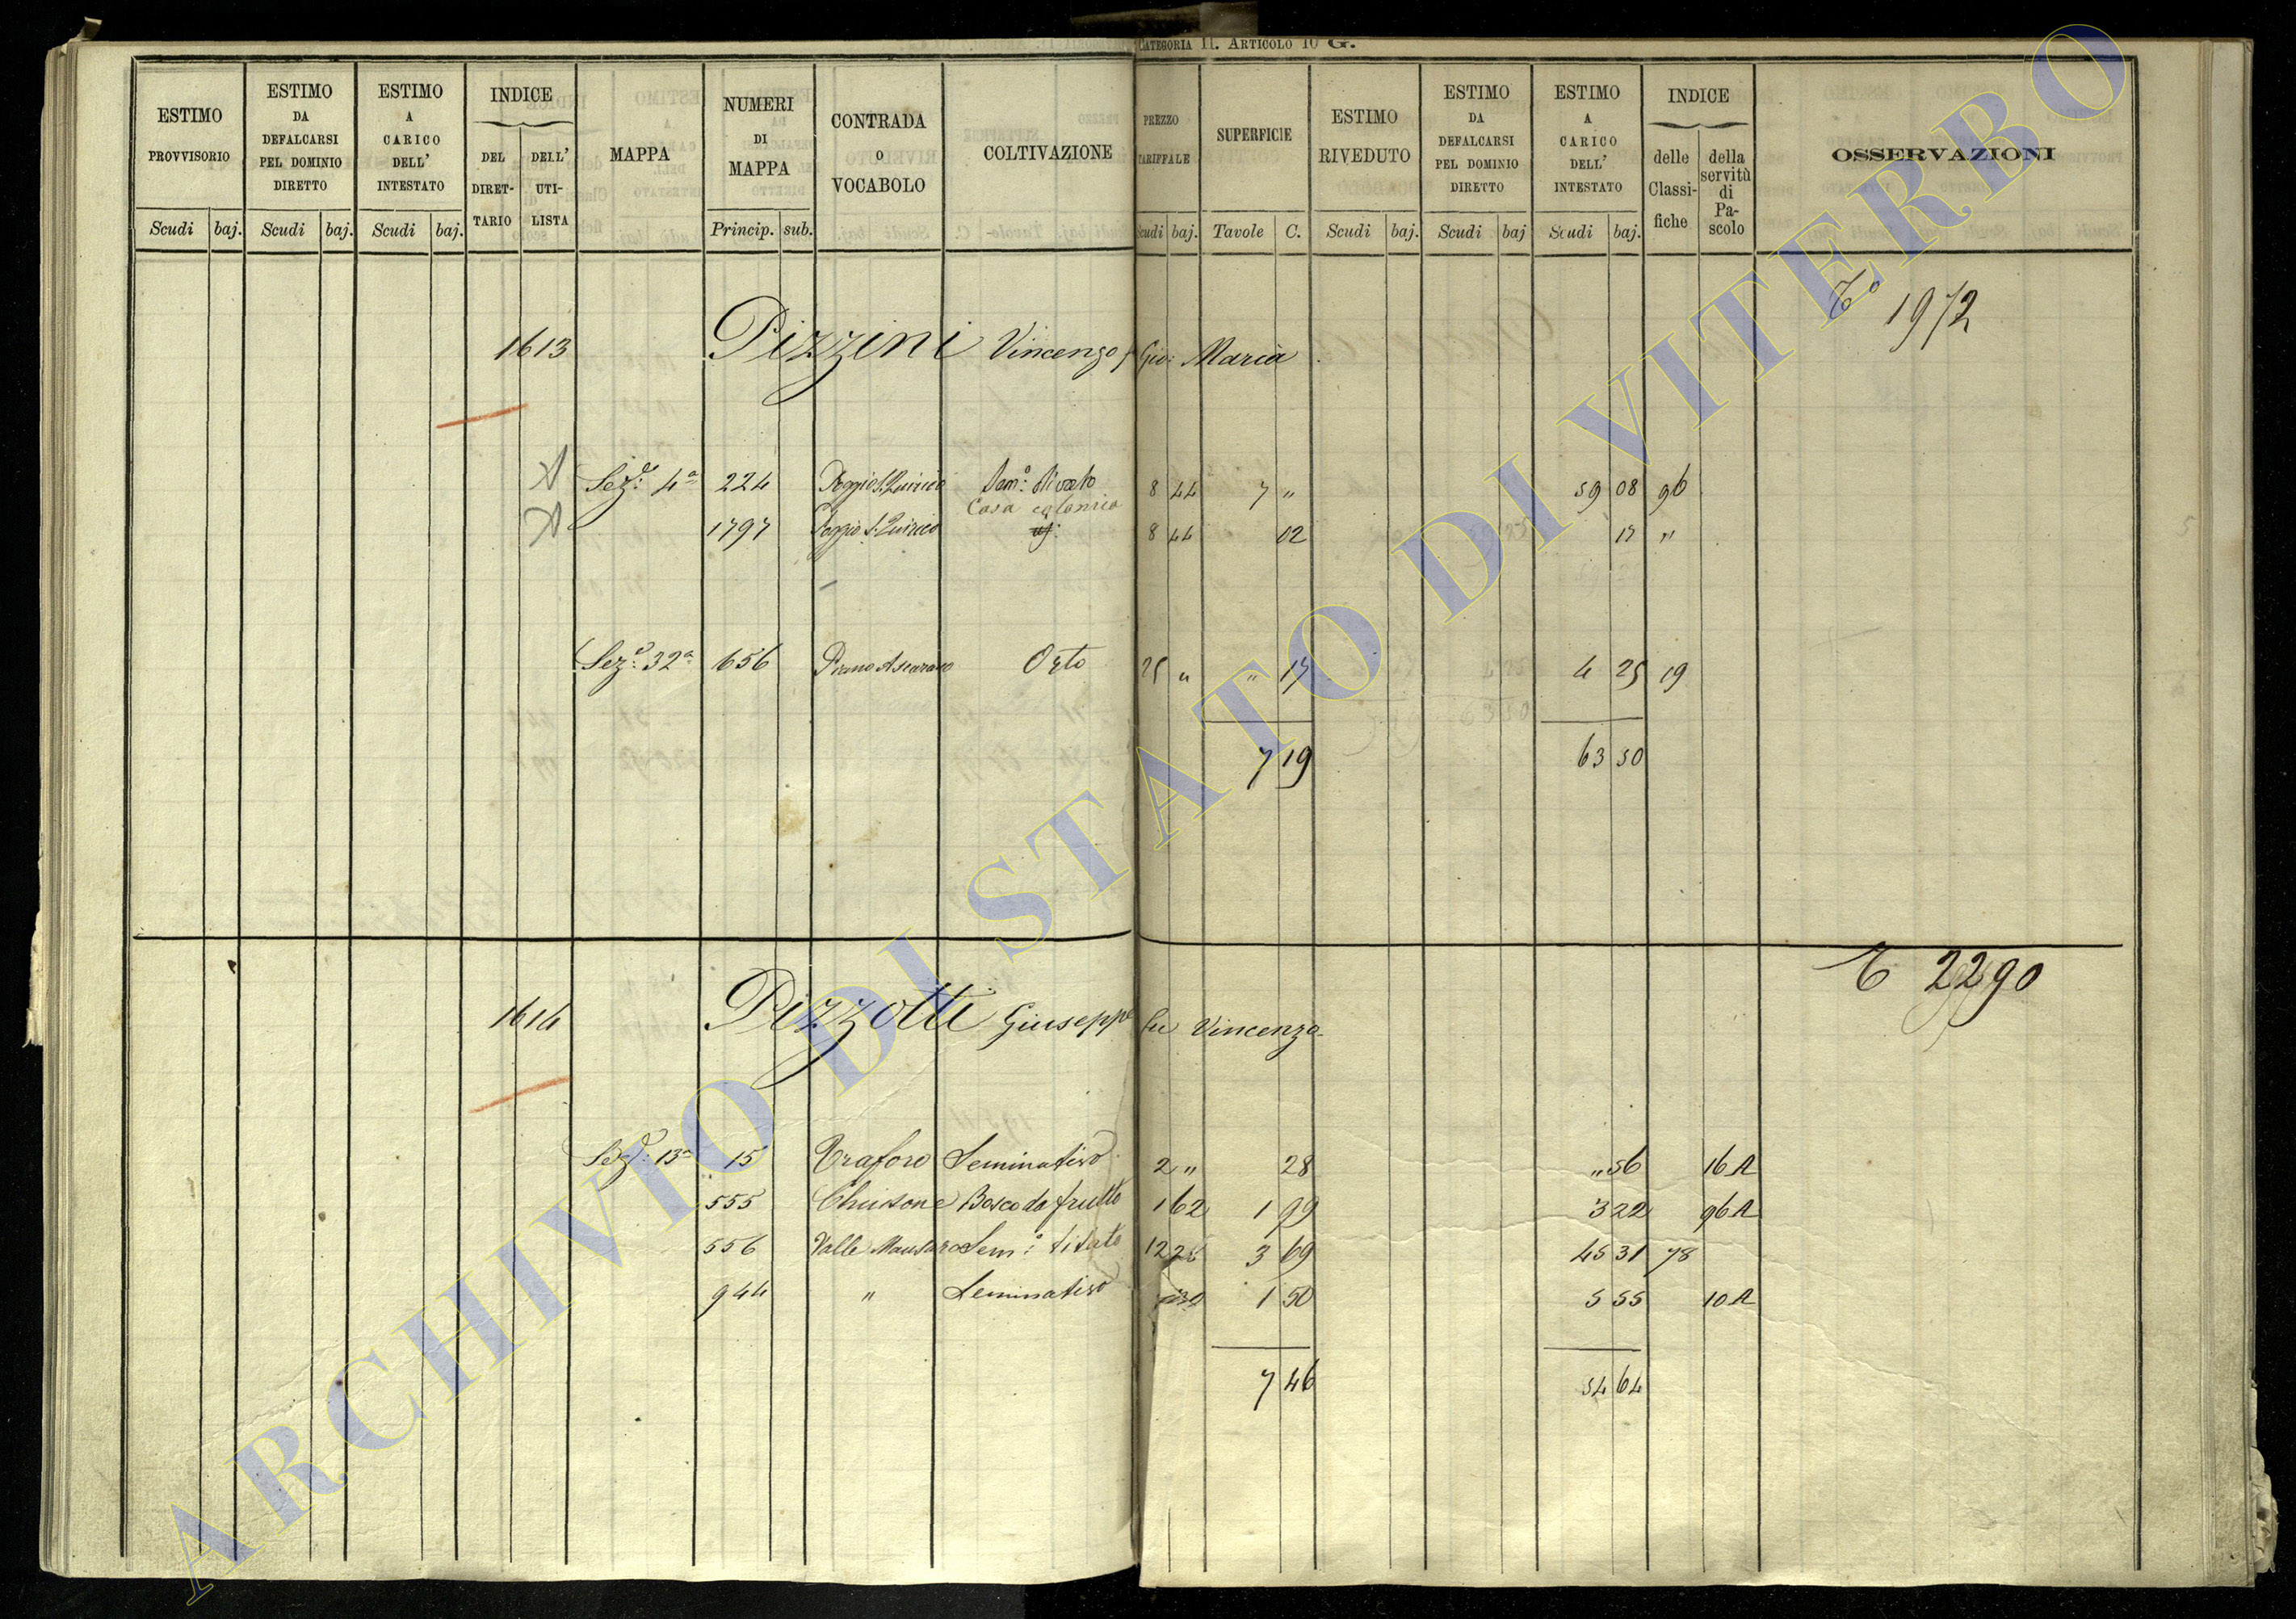 CATEGORIA II. ARTICOLO 10 G.
ESTIMO PROVVISORIO Scudi baj.
ESTIMO DA DEFALCARSI PEL DOMINIO DIRETTO Scudi baj.
ESTIMO A CARICO DELL' INTESTATO Scudi baj.
INDICE DEL DIRET-TARIO DELL' UTI-LISTA
MAPPA
NUMERI DI MAPPA Princip. sub.
CONTRADA O VOCABOLO
COLTIVAZIONE
PREZZO TARIFFALE Scudi baj.
SUPERFICIE Tavole C.
ESTIMO RIVEDUTO Scudi baj.
ESTIMO DA DEFALCARSI PEL DOMINIO DIRETTO Scudi baj
ESTIMO A CARICO DELL' INTESTATO Scudi baj.
INDICE delle Classi-fiche della servitù di Pa-scolo
OSSERVAZIONI
1972
1613 Pizzini Vincenzo f Gio: Maria
Sez: 4a 224 Poggio S. Quirico Sem: olivato 8 44 7 " 59 08 96
Casa colonica
1797 Poggio S. Quirico 8 44 02 17 "
Sez: 32a 656 Piano Ascarano Orto 25 " " 17 4 25 19
7 19 63 50
2290
1614 Pizzotti Giuseppe fu Vincenzo
Sez: 13a 15 Traforo Seminativo 2 " 28 " 56 16 A
555 Chiusone Bosco da frutto 1 62 1 99 3 22 96 A
556 Valle Sem: vitato 12 28 3 69 45 31 78
944 " Seminativo 1 50 5 55 10 A
7 46 54 64
ARCHIVIO DI STATO DI VITERBO